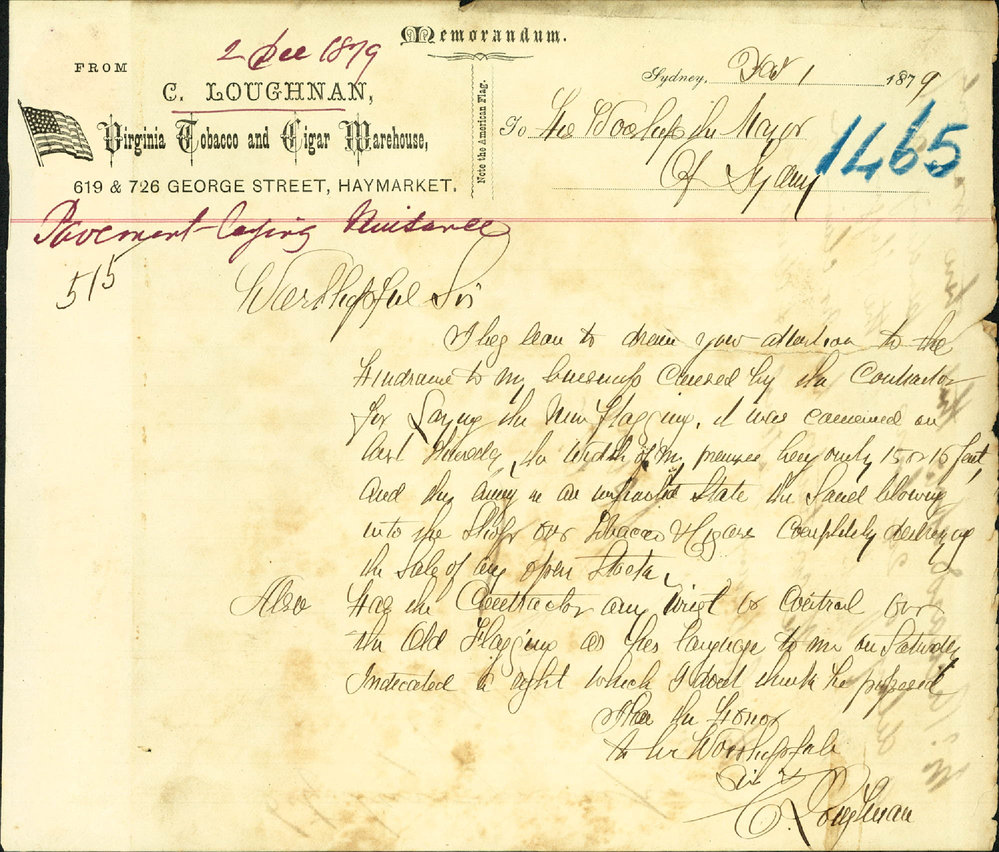 Memorandum.
2 Dec 1879
FROM
C. LOUGHNAN,
Virginia Tobacco and Cigar Warehouse,
619 & 726 GEORGE STREET, HAYMARKET.
Note the American Flag.
Sydney, 1 1879
To The Worshipful the Mayor
Of Sydney
1465
Pavement-laying Nuisance
515
Worshipful Sir
I beg leave to draw your attention to the
Hindrance to my business Caused by the Contractor
for Laying the New Flagging, it was on
last the width of my premises being only 15 or 16 feet,
and in an State the Sand blowing
into the Shop over Tobacco & Cigars Completely destroying
the Sale of any open Stock,
Also Has the Contractor any to control over
the Old Flagging as his language to me on Saturday
Indicated a right which I dont think he possesed
the Honor
to be Worshipful
Sir
C. Loughnan